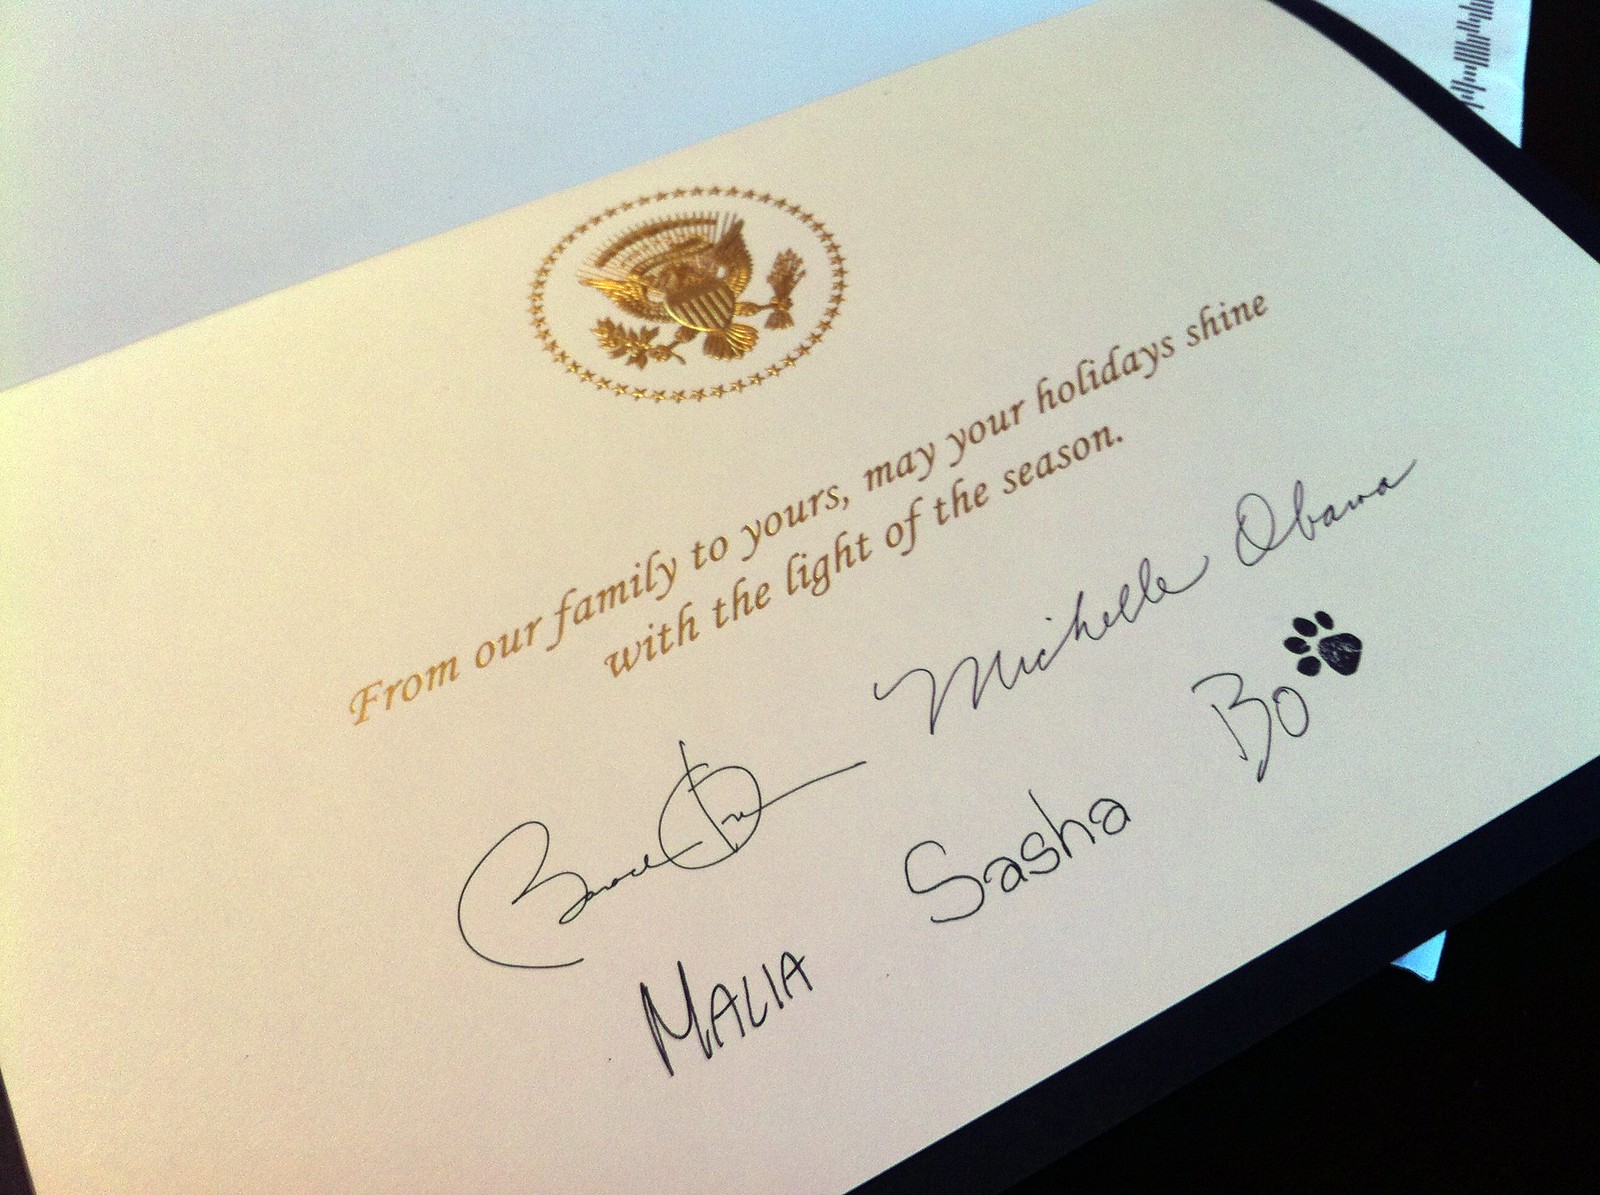 From our family to yours, may your holidays shine
with the light of the season.
Barack Obama Michelle Obama
MALIA Sasha Bo